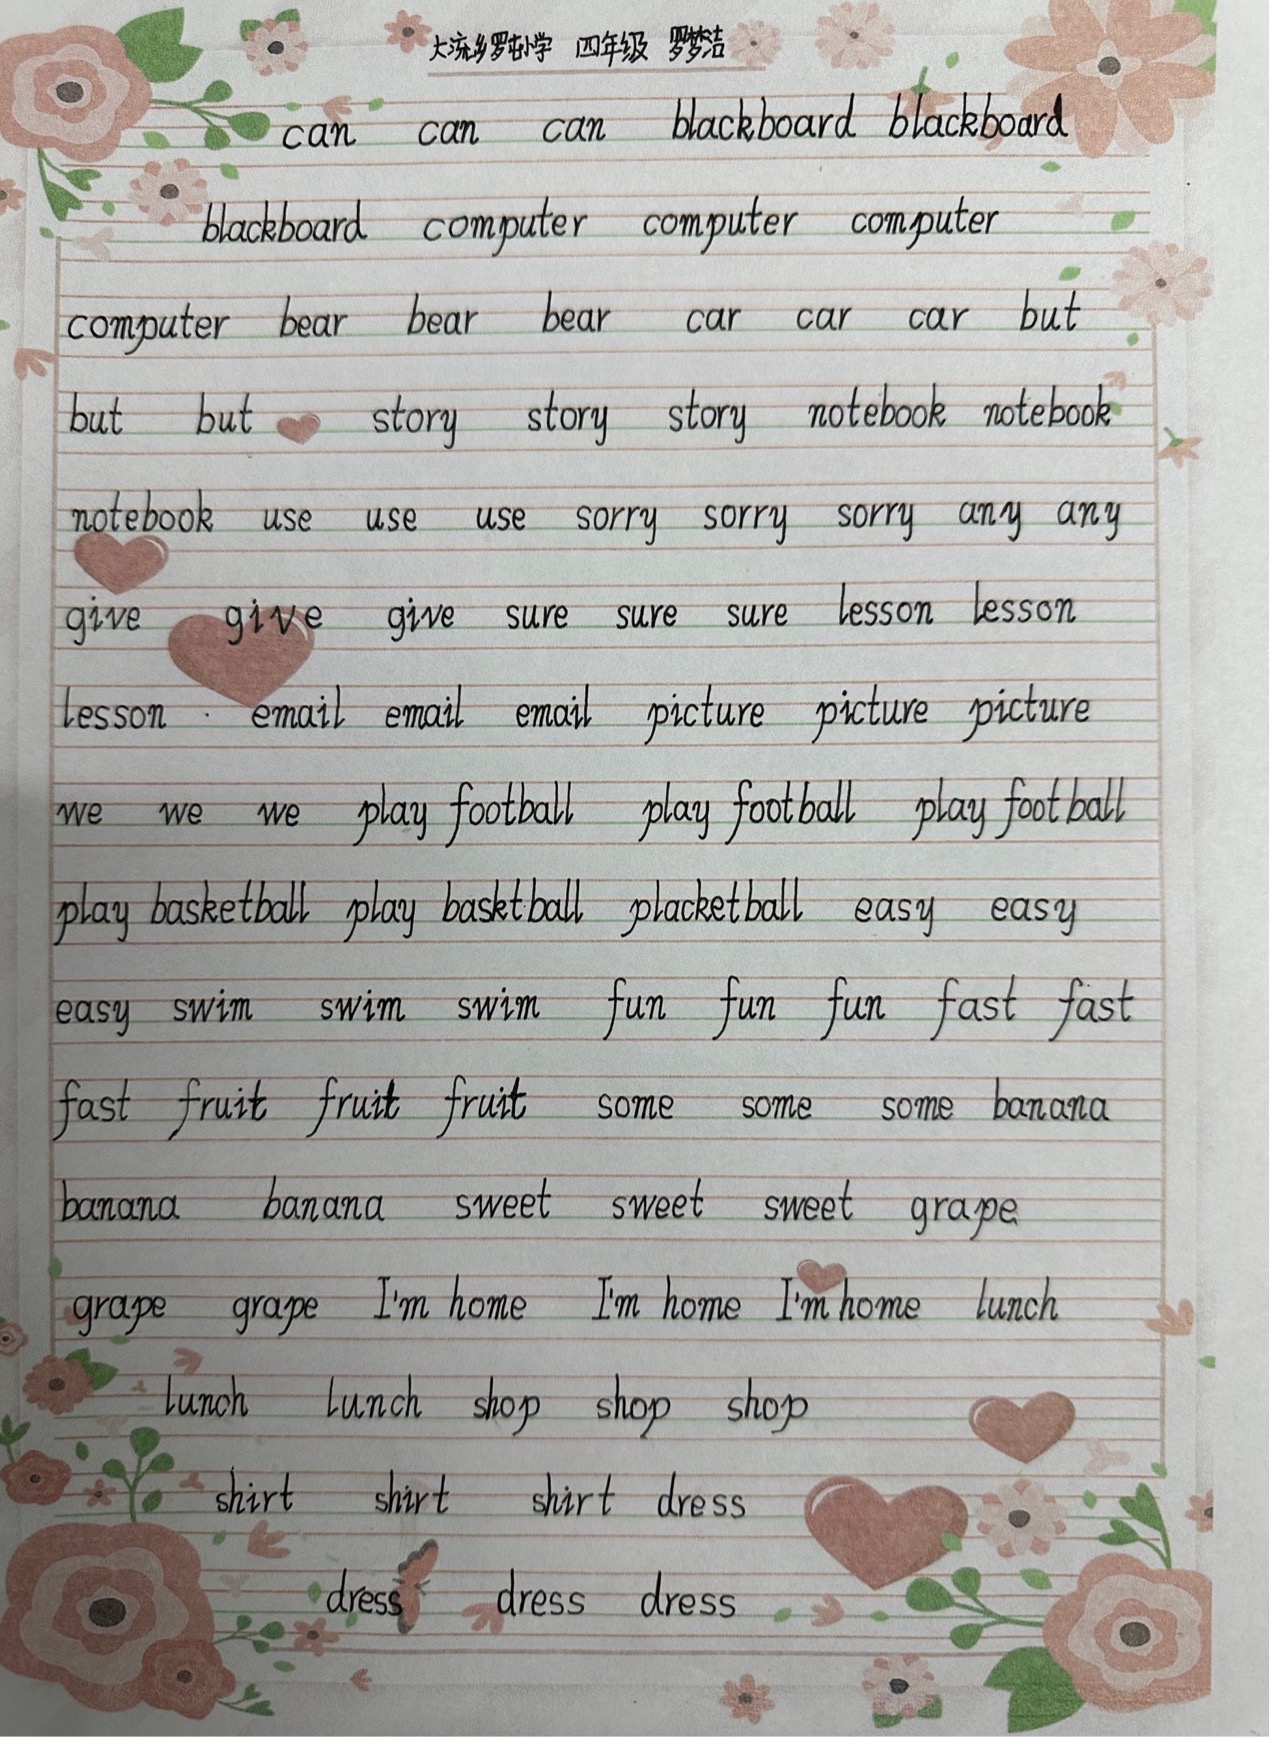 大流乡罗屯小学 四年级 罗梦洁
can can can blackboard blackboard
blackboard computer computer computer
computer bear bear bear car car car but
but but story story story notebook notebook
notebook use use use sorry sorry sorry any any
give give give sure sure sure lesson lesson
lesson email email email picture picture picture
we we we play football play football play football
play basketball play basktball placketball easy easy
easy swim swim swim fun fun fun fast fast
fast fruit fruit fruit some some some banana
banana banana sweet sweet sweet grape
grape grape I'm home I'm home I'm home lunch
lunch lunch shop shop shop
shirt shirt shirt dress
dress dress dress